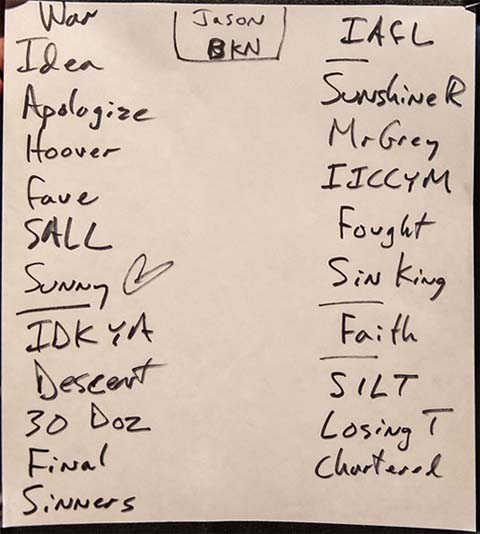 Jason
BKN
War
Idea
Apologize
Hoover
Fave
SALL
Sunny
IDKYA
Descent
30 Doz
Final
Sinners
IAFL
Sunshine R
Mr Grey
IICCYM
Fought
Sin King
Faith
SILT
Losing T
Chartered